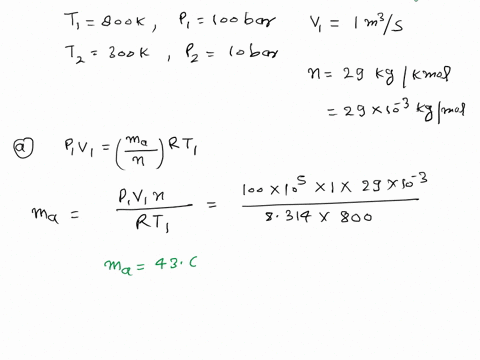 T₁ = 800k, P₁ = 100bar
V₁ = 1 m³/s
T₂ = 300k, P₂ = 10bar
n = 29 kg/kmol
= 29 × 10⁻³ kg/mol
ⓐ P₁V₁ = (mₐ/n) RT₁
mₐ = P₁V₁n / RT₁ = 100 × 10⁵ × 1 × 29 × 10⁻³ / 8.314 × 800
mₐ = 43.